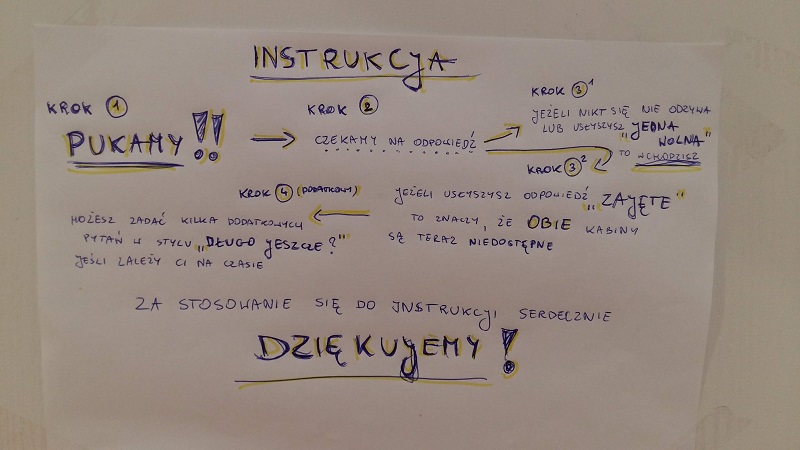 INSTRUKCJA
KROK 1
PUKAMY!!
KROK 2
CZEKAMY NA ODPOWIEDŹ
KROK 3¹
JEŻELI NIKT SIĘ NIE ODZYWA
LUB USŁYSZYSZ „JEDNA
WOLNA"
TO WCHODZISZ
KROK 3²
JEŻELI USŁYSZYSZ ODPOWIEDŹ „ZAJĘTE"
TO ZNACZY, ŻE OBIE KABINY
SĄ TERAZ NIEDOSTĘPNE
KROK 4 (DODATKOWY)
MOŻESZ ZADAĆ KILKA DODATKOWYCH
PYTAŃ W STYLU „DŁUGO JESZCZE?"
JEŚLI ZALEŻY CI NA CZASIE
ZA STOSOWANIE SIĘ DO INSTRUKCJI SERDECZNIE
DZIĘKUJEMY!